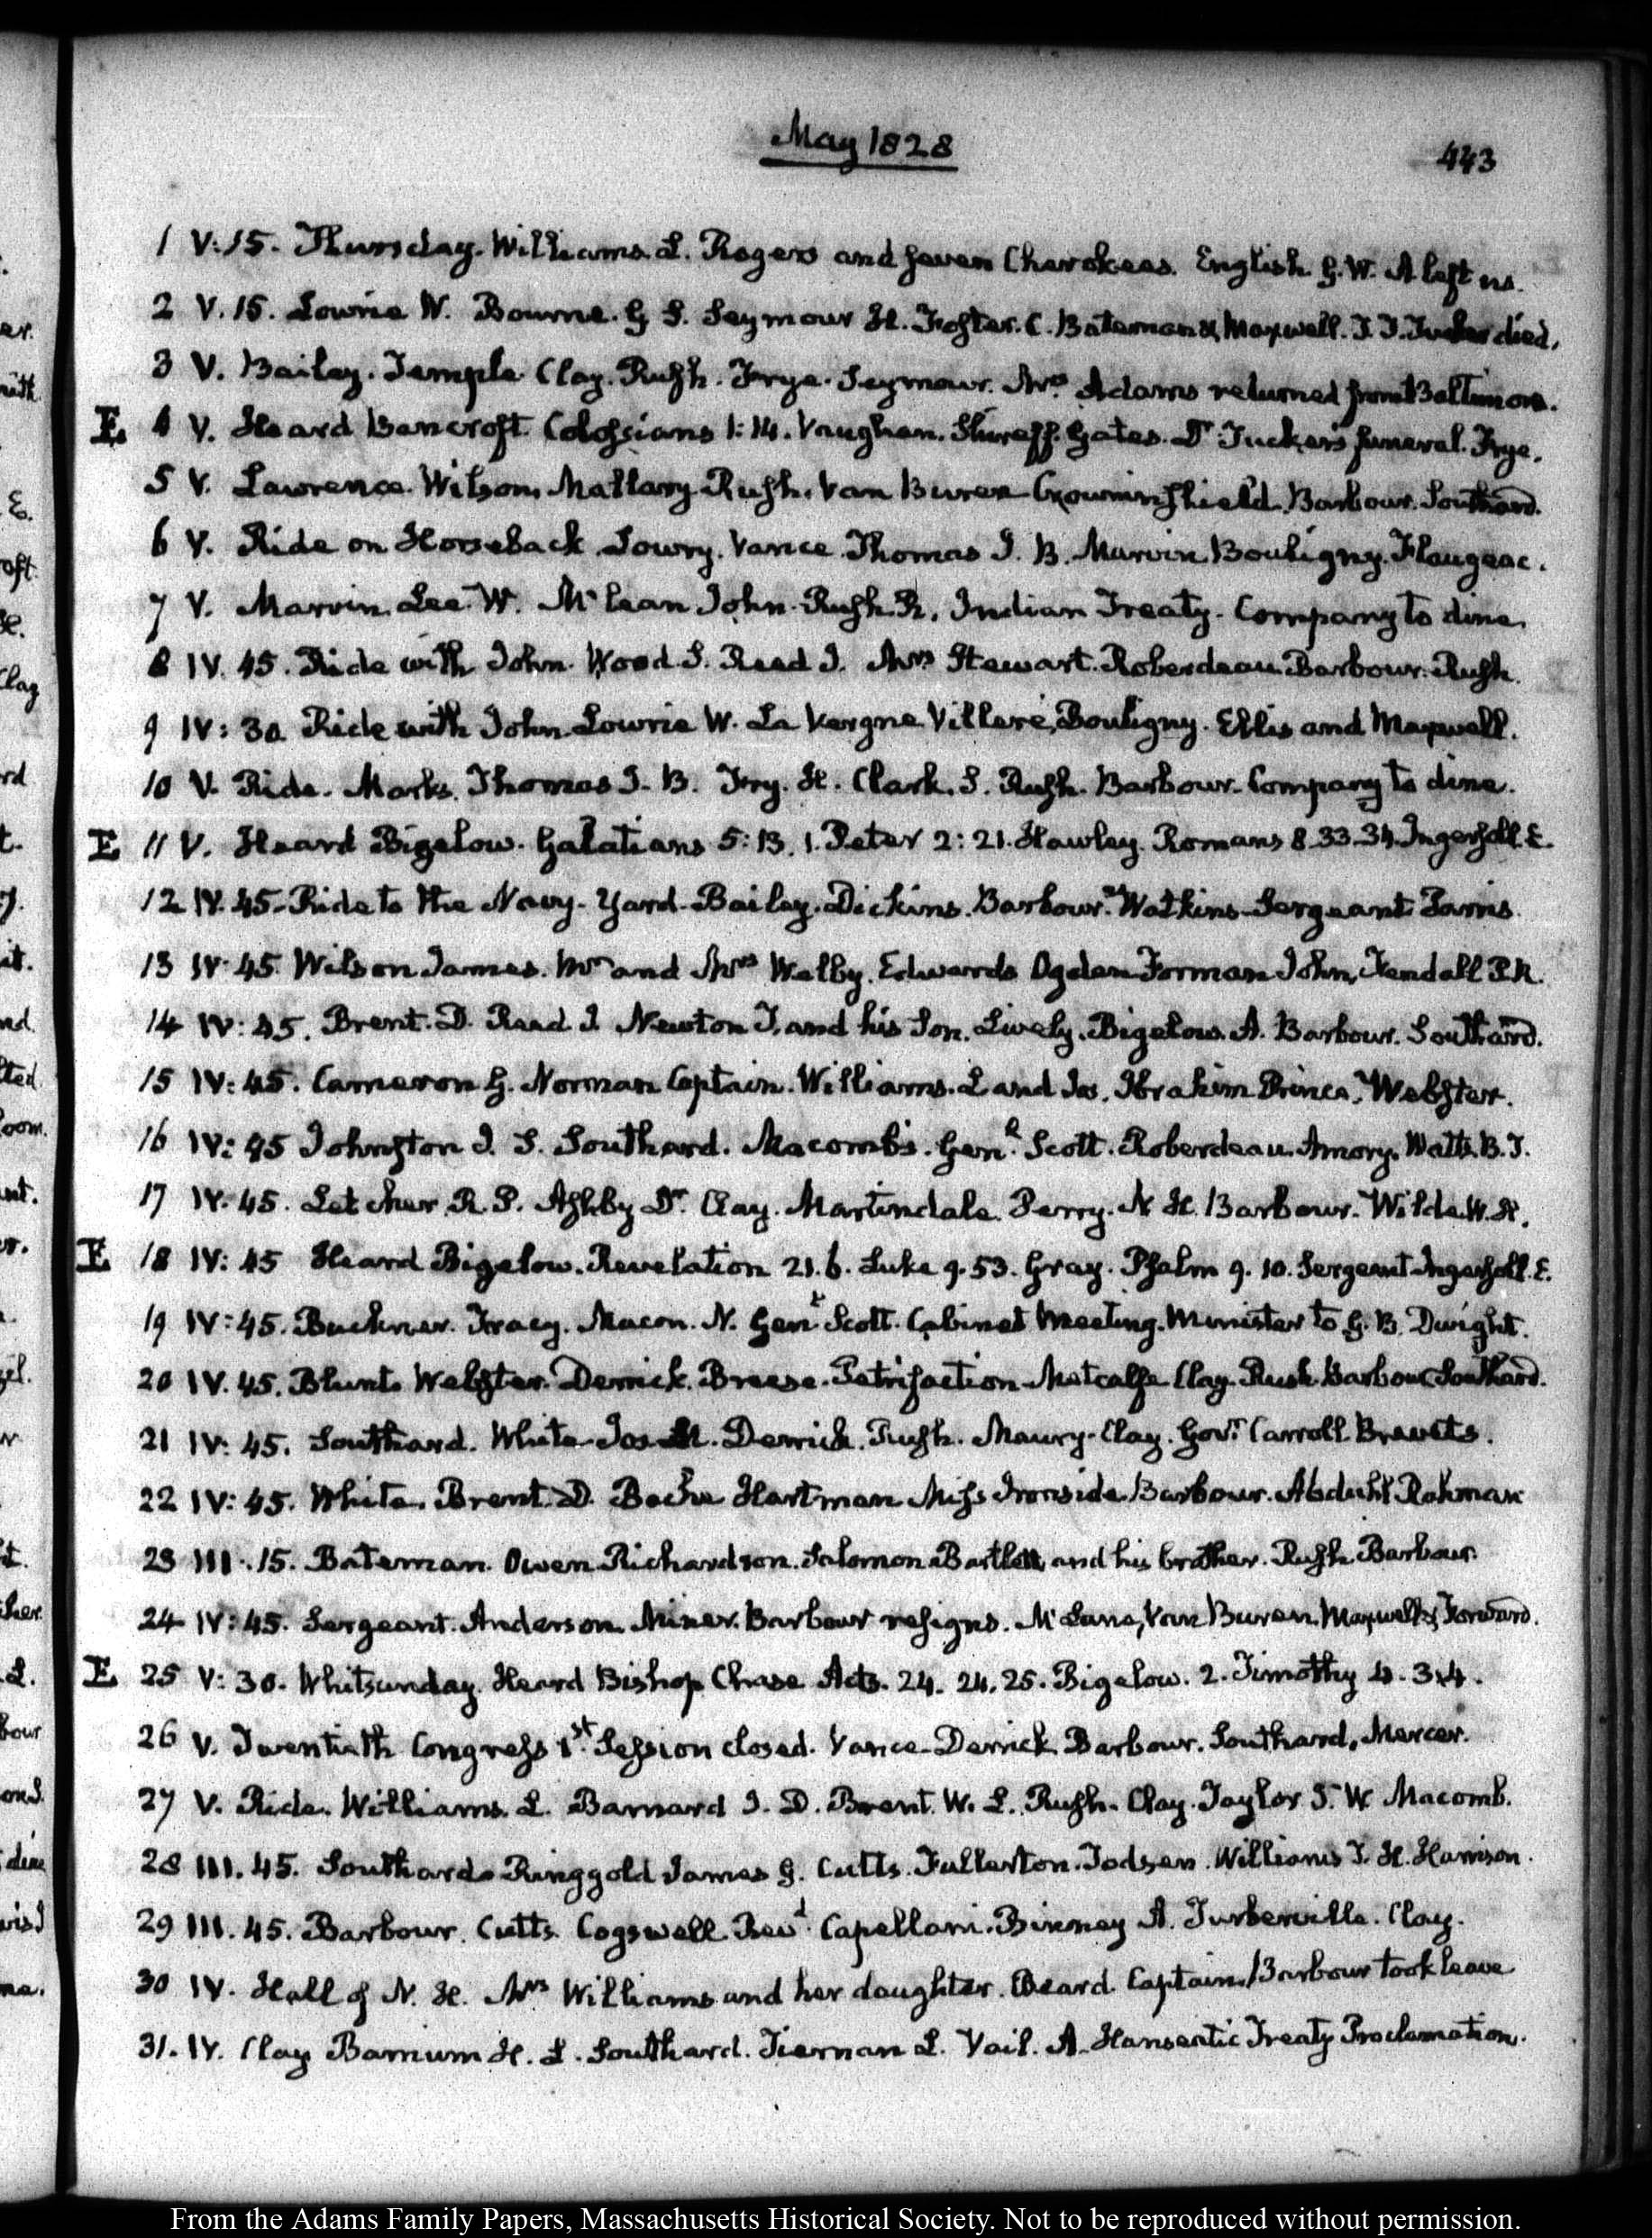 May 1828
443
1 V:15. Thursday. Williams. L. Rogers and seven Cherokees. English. G. W. A left us.
2 V. 15. Lowrie W. Bourne. G S. Seymour H. Foster. C. Bateman & Maxwell. T. T. Tucker died.
3 V. Bailey. Temple. Clay. Rush. Frye. Seymour. Mrs. Adams returned from Baltimore.
E. 4 V. Heard Bancroft. Colossians 1:14. Vaughan. Gates. Dr Tucker's funeral. Frye.
5 V. Lawrence. Wilson. Mallary. Rush. Van Buren Crowninshield. Barbour. Southard.
6 V. Ride on Horseback. Lowry. Vance. Thomas J. B. Marvin Bouligny. Flaugeac.
7 V. Marvin. Lee. W. McLean John. Rush. R. Indian Treaty. Company to dine.
8 IV. 45. Ride with John. Wood S. Reed J. Mrs Stewart. Roberdeau. Barbour. Rush.
9 IV: 30 Ride with John. Lowrie W. La Vergne Villere, Bouligny. Ellis and Maxwell.
10 V. Ride. Marks. Thomas J. B. Fry. H. Clark. S. Rush. Barbour. Company to dine.
E 11 V. Heard Bigelow. Galatians 5:13. 1. Peter 2:21. Hawley. Romans 8.33.34. Ingersoll. E.
12 IV. 45. Ride to the Navy-Yard. Bailey. Dickins. Barbour. Watkins. Sergeant.
13 IV. 45. Wilson James. Mr and Mrs Welby. Edwards Ogden Forman John, Kendall
14 IV: 45. Brent. D. Read J Newton T. and his Son. Lively. Bigelow. A. Barbour. Southard.
15 IV: 45. Cameron G. Norman Captain. Williams. L and Jos. Ibrahim Prince. Webster.
16 IV: 45 Johnston J. S. Southard. Macombs. Genl. Scott. Roberdeau. Amory. Watts. B. T.
17 IV. 45. Letcher. R. P. Ashby Dr. Clay. Martindale. Perry. N H. Barbour. Wilde. W. H.
E 18 IV: 45 Heard Bigelow. Revelation 21.6. Luke 9.53. Gray. Psalm 9.10. Sergeant Ingersoll. E.
19 IV: 45. Buckner. Tracy. Macon. N. Genl Scott. Cabinet Meeting. Minister to G. B. Dwight.
20 IV. 45. Blunt. Webster. Derrick. Breese. Petrifaction. Metcalfe Clay. Rush. Barbour. Southard.
21 IV: 45. Southard. White Jos. M. Derrick. Rush. Maury. Clay. Govr. Carroll Brevets.
22 IV: 45. White. Brent. D. Bache Hartman Miss Ironside. Barbour. Abduhl Rahman
23 III. 15. Bateman. Owen Richardson. Salomon Bartlett and his brother. Rush Barbour.
24 IV: 45. Sergeant. Anderson. Miner. Barbour resigns. McLane, Van Buren, Maxwell & Forward.
E 25 V: 30. Whitsunday. Heard Bishop Chase Acts. 24. 24.25. Bigelow. 2. Timothy 4. 3.4.
26 V. Twentieth Congress 1st. Session closed. Vance. Derrick Barbour. Southard, Mercer.
27 V. Ride. Williams. L. Barnard I. D. Brent. W. L. Rush. Clay. Taylor J. W. Macomb.
28 III. 45. Southard. Ringgold James G. Cutts. Fullerton. Todsen. Williams T. H. Harrison.
29 III. 45. Barbour. Cutts. Cogswell. Revd. Capellani. Binney A. Turberville. Clay.
30 IV. Hall of N. H. Mrs Williams and her daughter. Beard. Captain. Barbour took leave
31. IV. Clay Barnum H. L. Southard. Tiernan L. Vail. A. Hanseatic Treaty Proclamation.
From the Adams Family Papers, Massachusetts Historical Society. Not to be reproduced without permission.